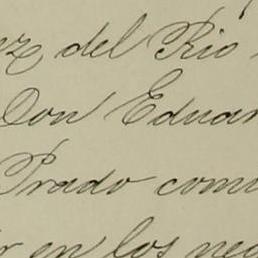 ez del Rio
Don Eduar
Prado com
r en los neg